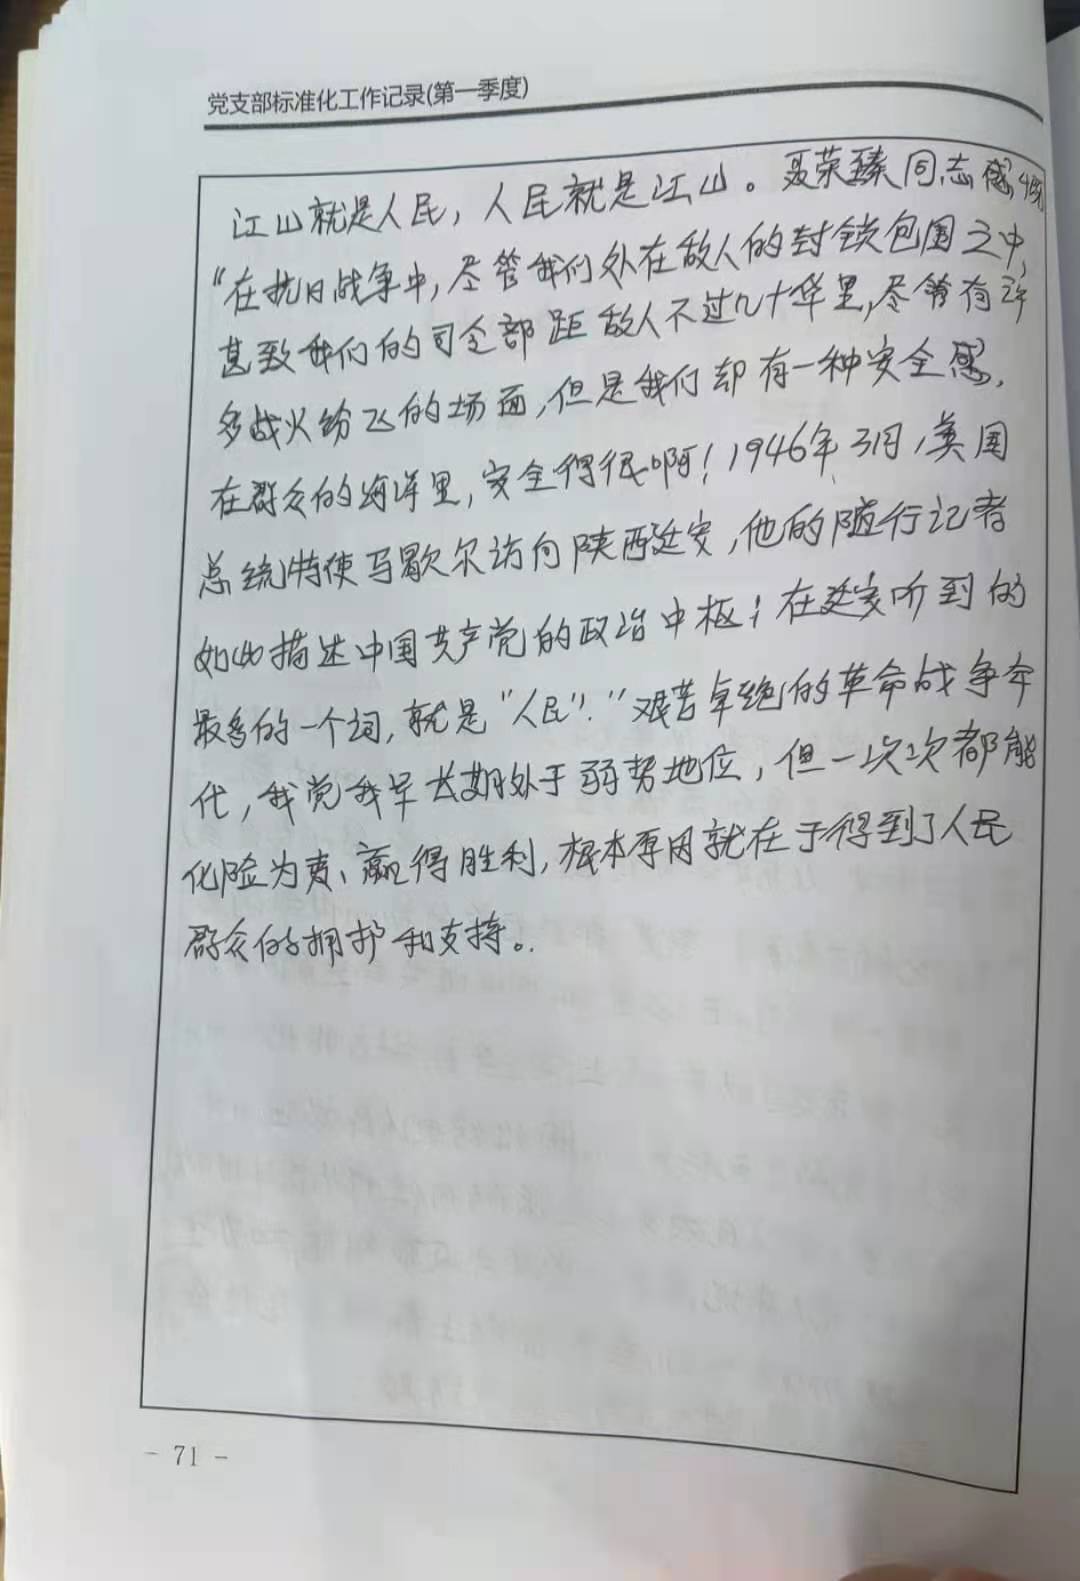 党支部标准化工作记录(第一季度)
江山就是人民，人民就是江山。聂荣臻同志感慨
“在抗日战争中，尽管我们处在敌人的封锁包围之中，
甚致我们的司令部距敌人不过几十华里，尽管有许
多战火纷飞的场面，但是我们却有一种安全感，
在群众的海洋里，安全得很啊！1946年3月，美国
总统特使马歇尔访问陕西延安，他的随行记者
如此描述中国共产党的政治中枢；在延安听到的
最多的一个词，就是“人民”．”艰苦卓绝的革命战争年
代，我党我军长期处于弱势地位，但一次次都能
化险为夷、赢得胜利，根本原因就在于得到了人民
群众的拥护和支持。
- 71 -